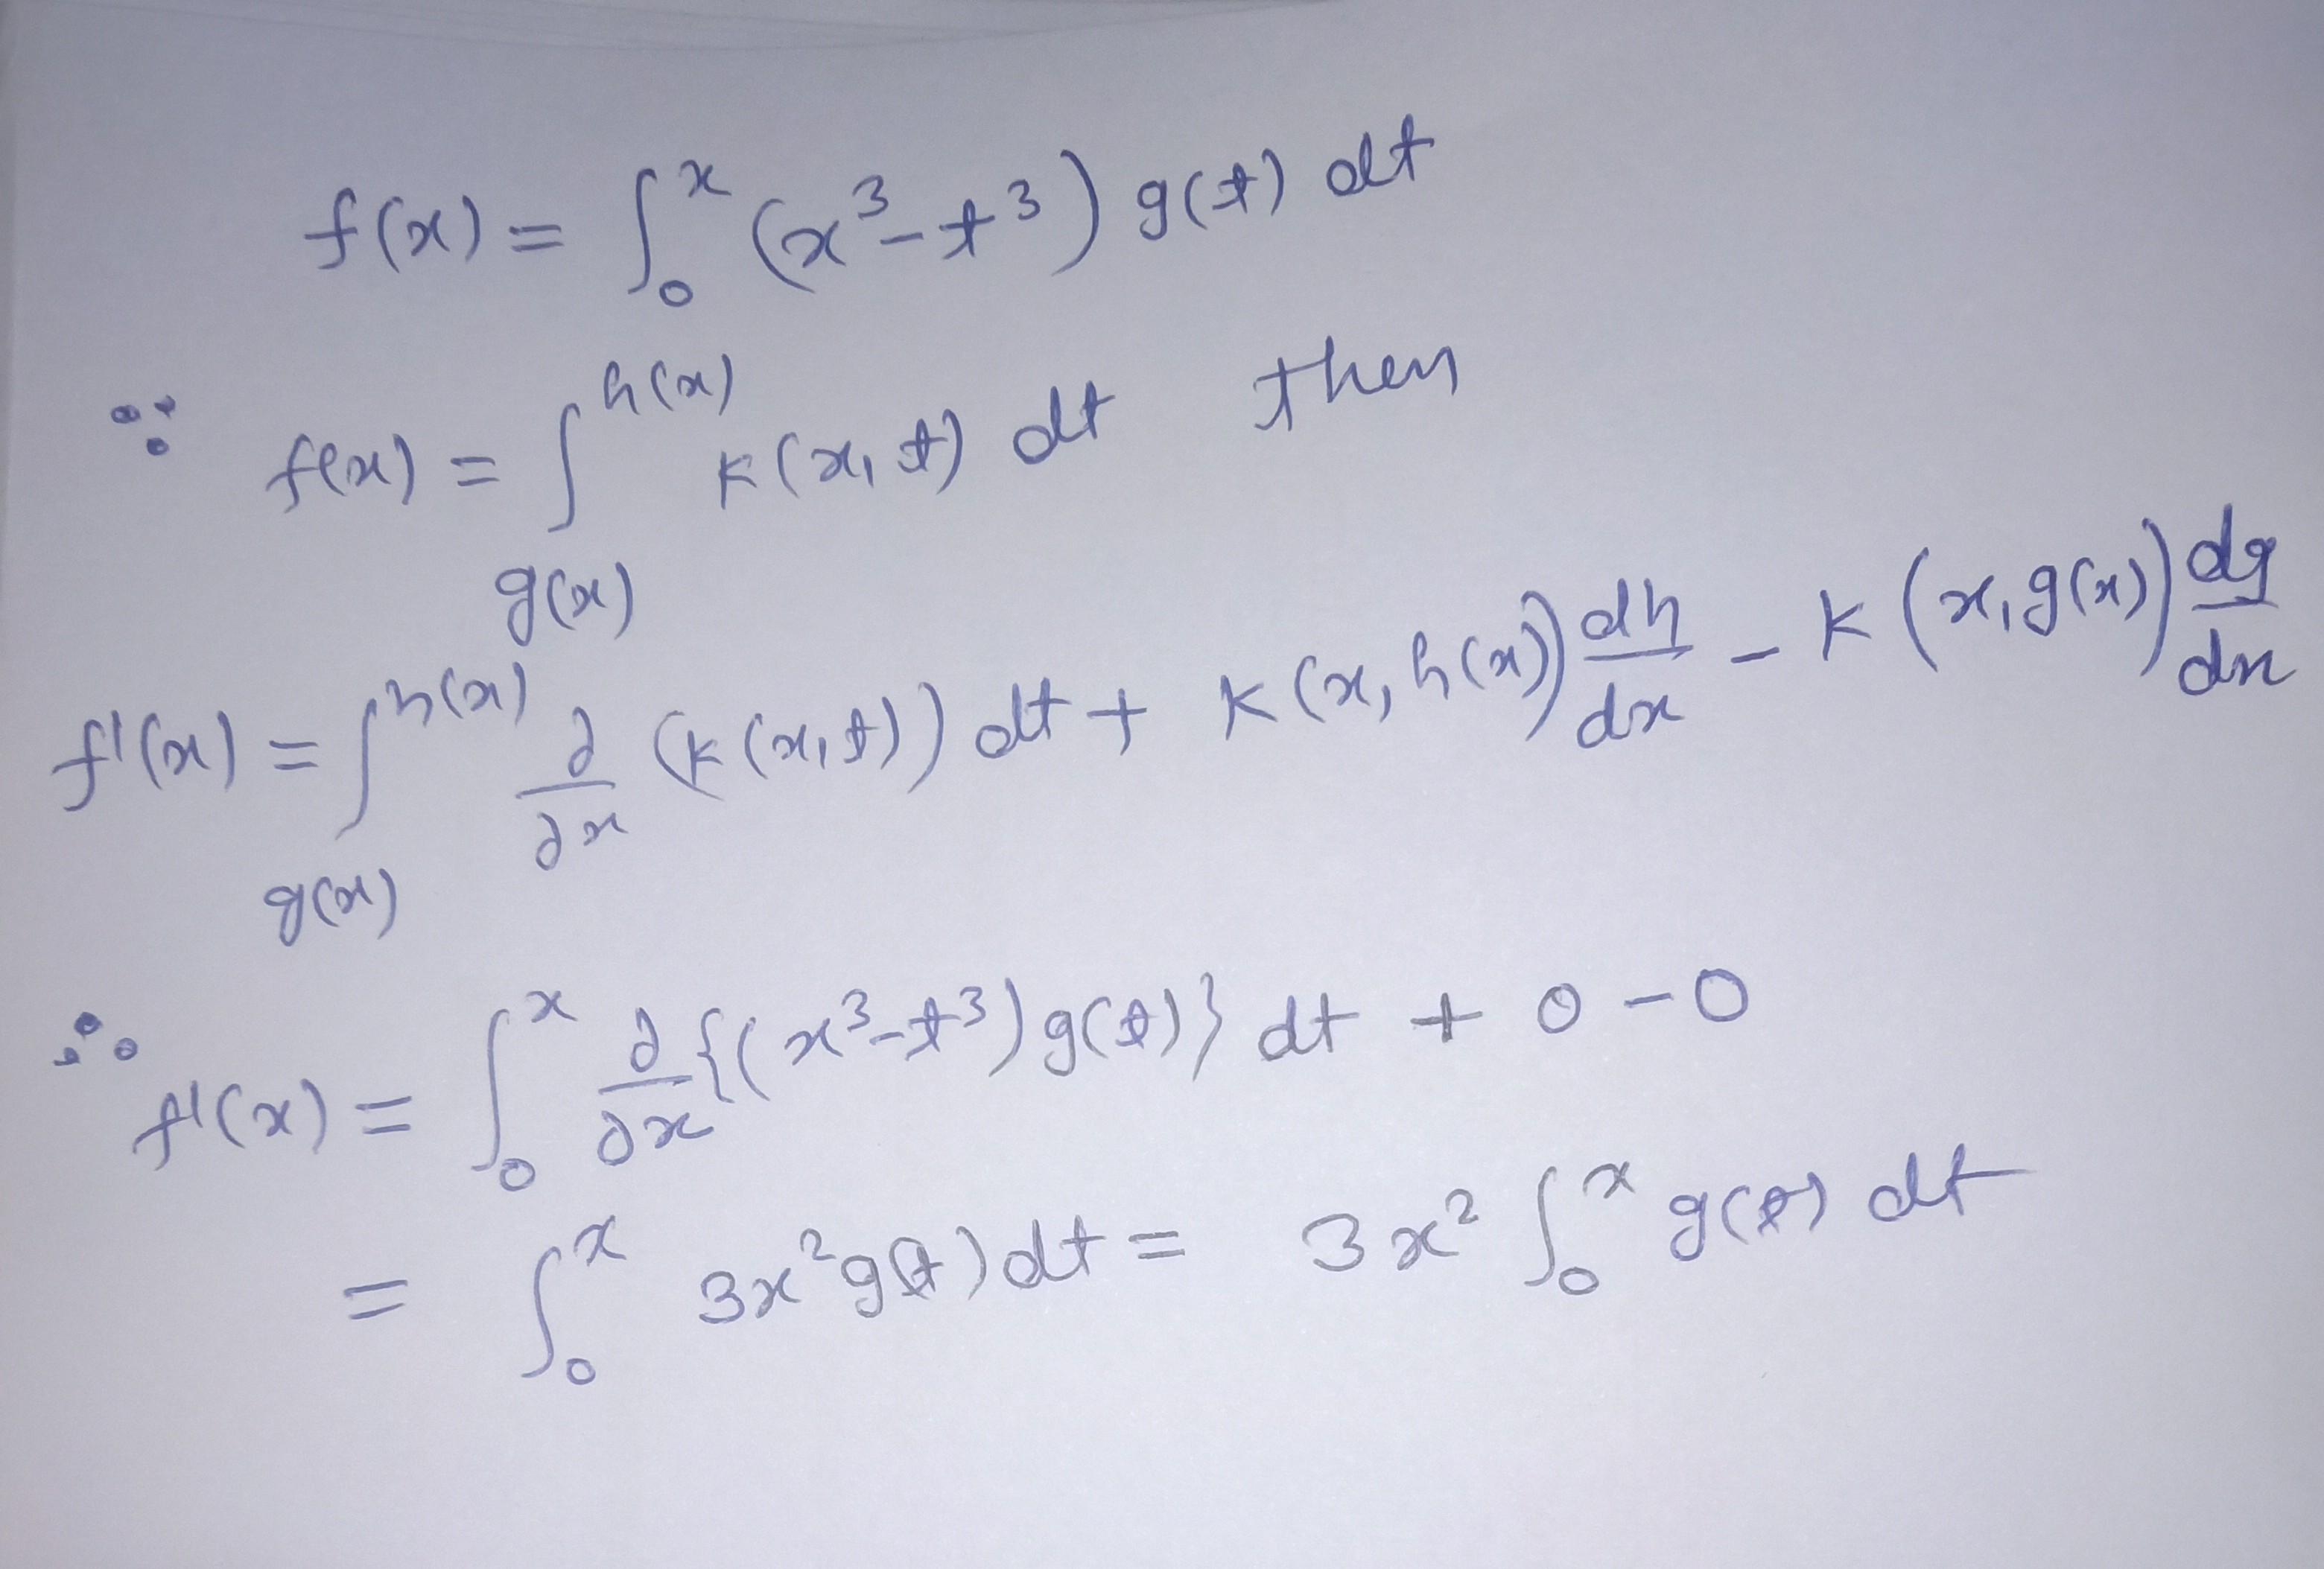 f(x) = ∫₀ˣ (x³ - t³) g(t) dt
∵ f(x) = ∫_{g(x)}^{h(x)} K(x, t) dt then
f'(x) = ∫_{g(x)}^{h(x)} ∂/∂x (K(x, t)) dt + K(x, h(x)) dh/dx - K(x, g(x)) dg/dx
∴ f'(x) = ∫₀ˣ ∂/∂x {(x³ - t³) g(t)} dt + 0 - 0
= ∫₀ˣ 3x² g(t) dt = 3x² ∫₀ˣ g(t) dt